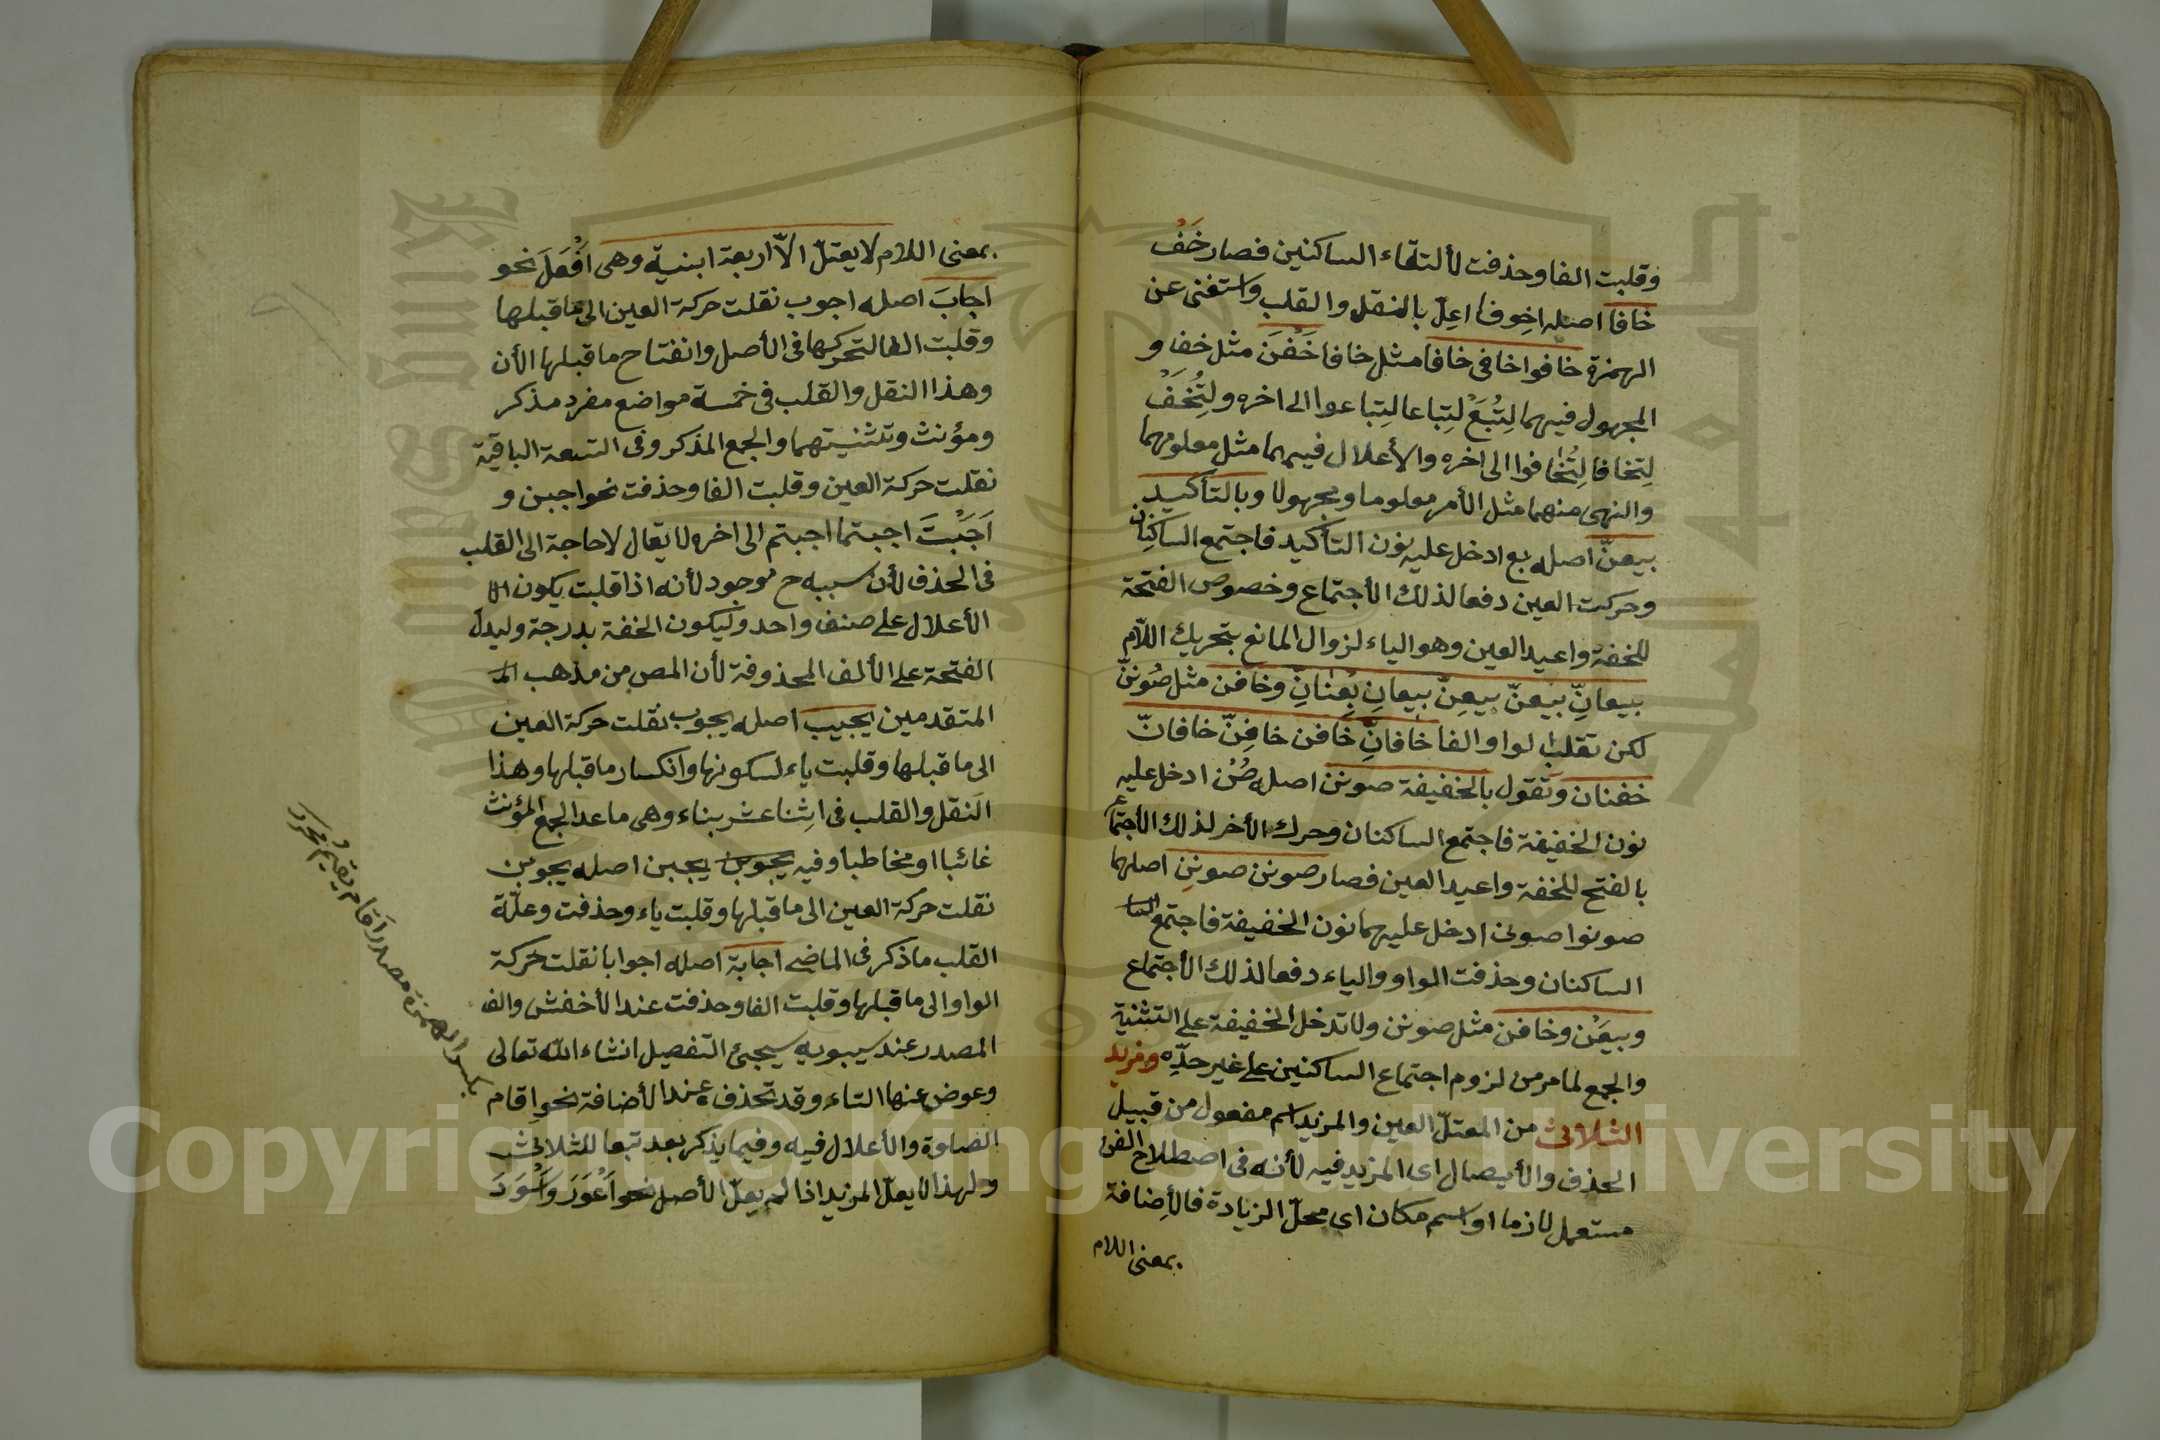 وقلبت الفا وحذفت لألتقاء الساكنين فصار خَفْ
خافا اصله اخوفا اعِلّ بالنقل والقلب واستغنى عن
الهمزة خافوا خافى خافا مثل خافا خَفْنَ مثل خفا و
المجهول فيهما لِتُبَعْ لِتباعا لِتباعوا الى اخره ولِتُخَفْ
لِتخافا لِتُخافوا الى اخره والأعلال فيهما مثل معلومهما
والنهى منهما مثل الأمر معلوما ومجهولا وبالتأكيد
بيعنّ اصله بع ادخل عليه نون التأكيد فاجتمع الساكنان
وحركت العين دفعا لذلك الأجتماع وخصوص الفتحة
للخفة واعيد العين وهو الياء لزوال المانع بتحريك اللّام
بيعانِّ بيعنّ بيعِنّ بيعانِ بِعْنانِّ وخافن مثل صُوننّ
لكن تقلب الواو الفا خافانِّ خافن خافِنّ خافانّ
خفنان وتقول بالخفيفة صونن اصله صُنْ ادخل عليه
نون الخفيفة فاجتمع الساكنان وحرك الأخر لذلك الأجتماع
بالفتح للخفة واعيد العين فصار صونن صونن اصلهما
صونوا صونى ادخل عليهما نون الخفيفة فاجتمع
الساكنان وحذفت الواو والياء دفعا لذلك الأجتماع
وبيعَن وخافن مثل صونن ولا تدخل الخفيفة على التثنية
والجمع لما مر من لزوم اجتماع الساكنين على غير حدّه ومزيد
الثلاثى من المعتلّ العين والمزيد اسم مفعول من قبيل
الحذف والأيصال اى المزيد فيه لأنه فى اصطلاح الفن
مستعمل لازما او اسم مكان اى محلّ الزيادة فالأضافة
بمعنى اللام
بمعنى اللام لا يعتلّ الاّ اربعة ابنية وهى اَفْعَلَ نحو
اجابَ اصله اجوب نقلت حركة العين الى ما قبلها
وقلبت الفا لتحركها فى الأصل وانفتاح ما قبلها الأن
وهذا النقل والقلب فى خمسة مواضع مفرد مذكر
ومؤنث وتثنيتهما والجمع المذكر وفى التسعة الباقية
نقلت حركة العين وقلبت الفا وحذفت نحو اجبن و
اَجَبْتَ اجبتما اجبتم الى اخره لا يقال لا حاجة الى القلب
فى الحذف لأن سببه ح موجود لأنه اذا قلبت يكون
الأعلال على صنف واحد وليكون الخفة بدرجة وليدلّ
الفتحة على الألف المحذوفة لأن المص من مذهب
المتقدمين يجيب اصله يجوب نقلت حركة العين
الى ما قبلها وقلبت ياء لسكونها وانكسار ما قبلها وهذا
النقل والقلب فى اثنا عشر بناء وهى ما عدا الجمع المؤنث
غائبا او مخاطبا وفيه يجبن اصله يجوبن
نقلت حركة العين الى ما قبلها وقلبت ياء وحذفت وعلّة
القلب ما ذكر فى الماضى اجابة اصله اجوابا نقلت حركة
الواو الى ما قبلها وقلبت الفا وحذفت عند الأخفش والف
المصدر عند سيبويه سيجئ التفصيل انشاء الله تعالى
وعوض عنها التاء وقد تحذف عند الأضافة نحو اِقام
الصلوة والأعلال فيه وفيما يذكر بعد تبعا للثلاثى
ولهذا لا يعلّ المزيد اذا لم يعلّ الأصل نحو اَعْوَرَ واَسْوَدَ
بكسر الهمزة مصدر اقام يقيم
Copyright © King Saud University